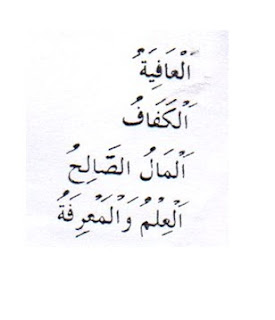 اَلْعَافِيَةُ
اَلْكَفَافُ
اَلْمَالُ الصَّالِحُ
اَلْعِلْمُ وَالْمَعْرِفَةُ